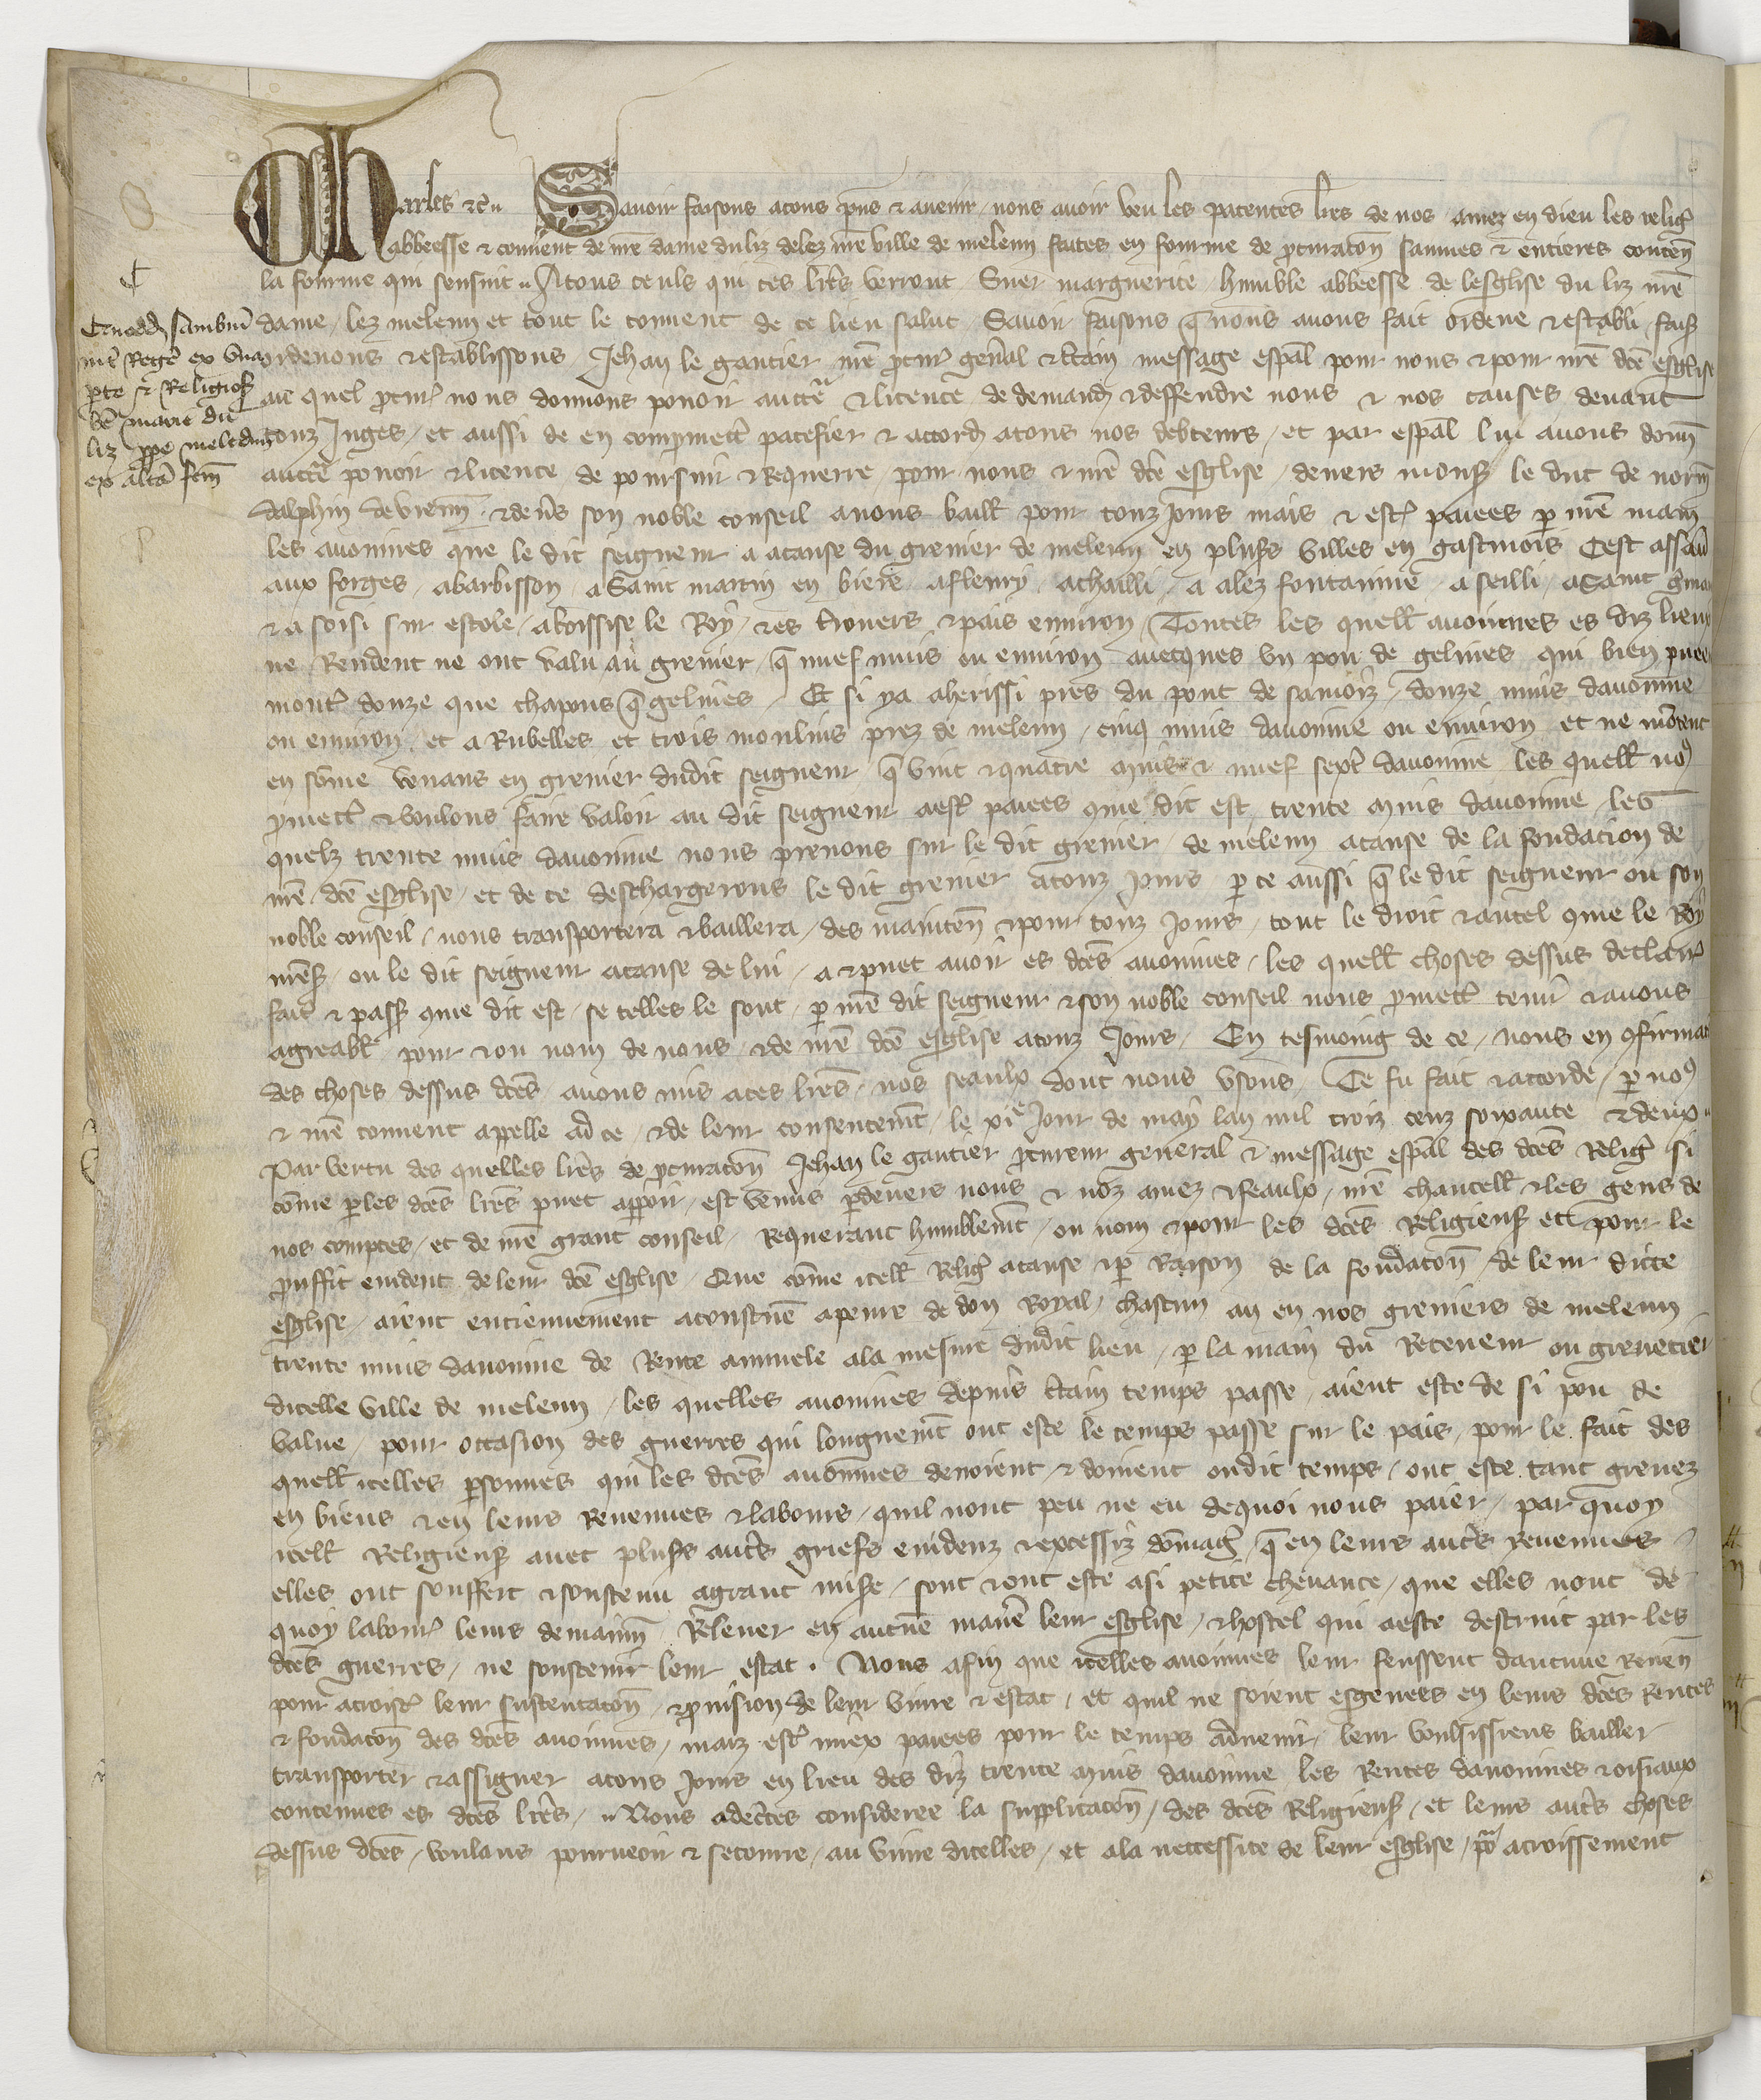 Charles etc. Savoir faisons a tous pñs & avenir nous avoir veu les patentes lres de nos amez en dieu les relig̃
abbeesse & couvent de nr̃e dame du liz delez nr̃e ville de meleun faites en fourme de ꝓcuracon̄ saines & entieres conten̄
la fourme qui sensuit Atous ceuls qui ces lr̃es verront Suer marguerite humble abbeesse de lesglise du liz nr̃e
Cᷓ
dame lez meleun et tout le couvent de ce lieu salut Savoir faisons q̃ nous avons fait ordene & establi fais̃
ordenons & establissons Jehan le gautier nr̃e ꝓcur̃ gen̄al & c̃tain message esp̃al pour nous & pour nr̃e dc̃e esglise
mr̃e Rege ex una
pte & Religios̃
bẽ marie du
liz ꝓpe meledun̄
ex alt̃a fem̄
au quel ꝓcur̃ nous donnons pouoir auctẽ & licence de demand̃ & deffendre nous & nos causes devant
touz Juges et aussi de en compromett̃ pacefier & accord̃ a tous nos debteurs et par esp̃al lui avons donn̄
auctẽ pouoir & licence de poursuir & Requerre pour nous & nr̃e dc̃e esglise devers mons̃ le duc de norm̄
dalphin de vienn̄ & dev̄s son noble conseil avons baill̃ pour touz jours mais & estr̃ paiees p nr̃e main
les avoinnes que le dit seigneur a a cause du grenier de meleun en plus̃s villes en gastinois Cest assav̄
aux forges a barbisson a Saint martin en biere a fleury a chailli a alez fontainne a seilli a Saint g̃main
& a soisi sur escole a boissise le Roy & es t̃rouers & pais environ Toutes les quell̃ avoinnes es diz lieux
ne Rendent ne ont valu au grenier q̃ nuef muis ou environ avecques un pou de gelines qui bien puee
mont̃ douze que chapons q̃ gelines Et si ya a herissi pres du pont de samoiz douze muis davoinne
ou environ et a Rubelles et trois moulins prez de meleun cinq muis davoinne ou environ et ne mõtent
en sõme venans en grenier dudit seigneur q̃ vint & quatre muis & nuef sext̃ davoinne les quell̃ noꝰ
ꝓmett̃ & voulons faire valoir au dit seigneur a est̃ paiees cõme dit est trente muis davoinne les
quelz trente muis davoinne nous prenons sur le dit grenier de meleun a cause de la fondacion de
nr̃e dc̃e esglise et de ce deschargerons le dit grenier a touz jours p ce aussi q̃ le dit seigneur ou son
noble conseil nous transportera & baillera des mainten̄ & pour touz jours tout le droit & autel cõme le Roy
mes̃ ou le dit seigneur a cause de lui a & puet avoir es dc̃es avoinnes les quell̃ choses dessus declair̃
fait̃ & pass̃ cõme dit est se telles le sont p nr̃e dit seigneur & son noble conseil nous ꝓmett̃ tenir & avons
agreabl̃ pour & ou nom de nous & de nr̃e dc̃e esglise a touz jours En tesmoing de ce nous en cõfirmac̃
des choses dessus dc̃es avons mis a ces lr̃es nos seaulx dont nous usons Ce fu fait & accorde p noꝰ
& nr̃e couvent apelle ad ce & de leur consentem̃t le xiᵉ jour de may lan mil troiz cenz soixante & deux
Par vertu des quelles lr̃es de ꝓcuracon̄ Jehan le gautier ꝓcureur general & message esp̃al des dc̃es Relig̃ si
cõme p les dc̃es lr̃es puet apparoir est venus p devers nous & noz amez & feaulx nr̃e chancell̃ & les gens de
nos comptes et de nr̃e grant conseil Requerant humblem̃t ou nom & pour les dc̃es Religieus̃ et pour le
ꝓuffit evident de leur dc̃e esglise Que cõme icell̃ Relig̃ a cause & p Raison de la fondacon̄ de leur dicte
esglise aient enciennement acoustumẽ a penre de don Royal chascun an en nos greniers de meleun
trente muis davoinne de Rente annuele a la mesure dudit lieu p la main du Receveur ou grenetier
dicelle ville de meleun les quelles avoinnes depuis c̃tain temps passe aient este de si pou de
value pour occasion des guerres qui longuem̃t ont este le temps passe sur le pais pour le fait des
quell̃ icelles p̃sonnes qui les dc̃es avoinnes devoient & doivent oudit temps ont este tant grevez
en biens & en leurs Revenues & labours quil nont peu ne eu dequoi nous paier par quoy
icell̃ Religieus̃ avec plus̃s aut̃s griefs evidenz & excessiz dõmag̃ q̃ en leurs aut̃s Revenues
elles ont souffert & soustenu a grant mis̃e sont & ont este a si petite chevance que elles nont de
quoy labour̃ leurs demain̄ Relever en aucunẽ manẽ leur esglise & hostel qui a este destruit par les
dc̃es guerres ne soustenir leur estat Nous afin que icelles avoinnes leur feussent daucune Reven̄
pour acroist̃ leur sustentacon̄ & ꝓvision de leur vivre & estat et quil ne soient esgenees en leurs dc̃es Rentes
& fondacon̄ des dc̃es avoinnes maiz est̃ miex paiees pour le temps advenir leur voulsissiens bailler
transporter & assigner a tous jours en lieu des diz trente muis davoinne les Rentes davoinnes & oisiaux
contenues es dc̃es lr̃es Nous adec̃tes consideree la supplicacon̄ des dc̃es Religieus̃ et leurs aut̃s choses
dessus dc̃es voulans pourveoir & secourre au vivre dicelles et a la neccessite de leur esglise pour acroissement